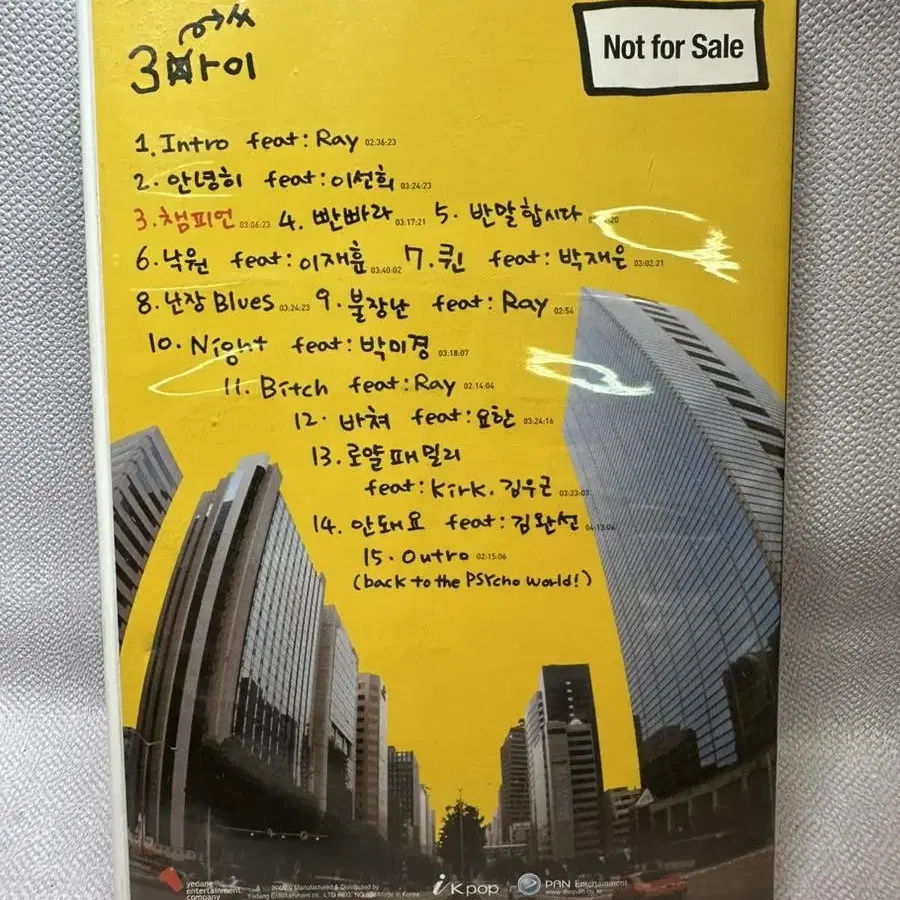 3싸이
Not for Sale
1. Intro feat: Ray 02:36:23
2. 안녕히 feat: 이선희 03:24:23
3. 챔피언 03:06:23 4. 빤빠라 03:17:21 5. 반말합시다
6. 낙원 feat: 이재훈 03:40:02 7. 퀸 feat: 박재은 03:02:21
8. 난장 Blues 03:24:23 9. 불장난 feat: Ray 02:54
10. Night feat: 박미경 03:18:07
11. Bitch feat: Ray 02:14:04
12. 바쳐 feat: 요한 03:24:16
13. 로얄패밀리
feat: Kirk. 김우근 03:23:03
14. 안돼요 feat: 김완선 04:13:06
15. Outro 02:15:06
(back to the PSYcho world!)
yedang entertainment company
Manufactured & Distributed by
Yedang Entertainment co., LTD Made in Korea
iKpop
PAN Entertainment